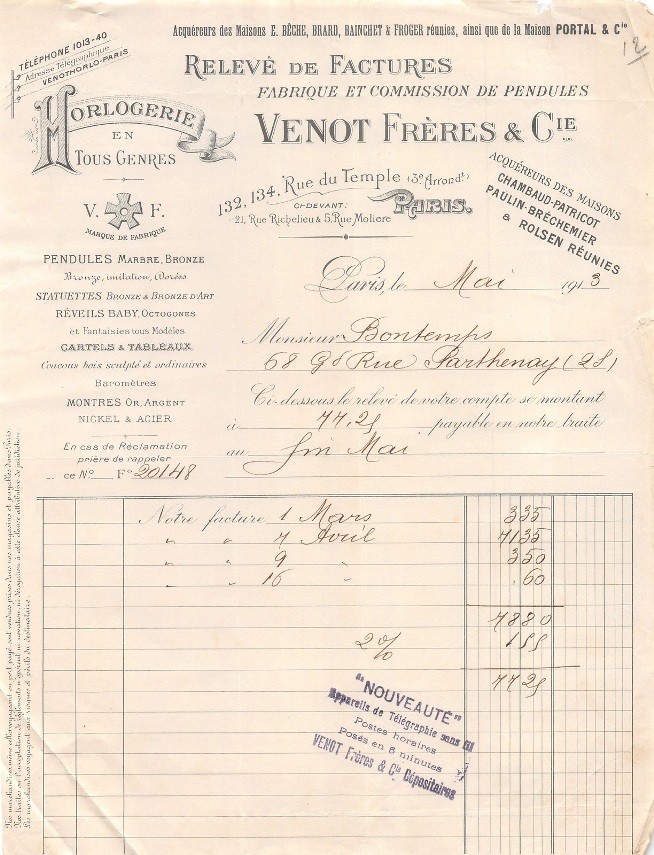 Acquéreurs des Maisons E. BÊCHE, BRARD, BAINCHET & FROGER réunies, ainsi que de la Maison PORTAL & Cie
12
TÉLÉPHONE 1013-40
Adresse Télégraphique
VENOTHORLO-PARIS
RELEVÉ DE FACTURES
FABRIQUE ET COMMISSION DE PENDULES
VENOT FRÈRES & CIE
HORLOGERIE
EN
TOUS GENRES
132, 134, Rue du Temple (3e Arrondt)
CI-DEVANT:
21, Rue Richelieu & 5, Rue Molière
PARIS.
ACQUÉREURS DES MAISONS
CHAMBAUD-PATRICOT
PAULIN-BRÉCHEMIER
& ROLSEN RÉUNIES
V. F.
MARQUE DE FABRIQUE
PENDULES MARBRE, BRONZE
Bronze, imitation, Dorées
STATUETTES BRONZE & BRONZE D'ART
RÉVEILS BABY, OCTOGONES
et Fantaisies tous Modèles
CARTELS & TABLEAUX
Coucous bois sculpté et ordinaires
BAROMÈTRES
MONTRES OR, ARGENT
NICKEL & ACIER
En cas de Réclamation
prière de rappeler
ce No F° 20148
Paris, le Mai 1913
Monsieur Bontemps
68 Gde Rue Parthenay (2S)
Ci-dessous le relevé de votre compte se montant
à 77,25 payable en notre traite
au fin Mai
Notre facture 1 Mars 335
" " 7 Avril 7135
" " 9 350
" " 16 " .60
7880
2% 155
7725
"NOUVEAUTÉ"
Appareils de Télégraphie sans fil
Postes horaires
Posés en 5 minutes
VENOT Frères & Cie Dépositaires